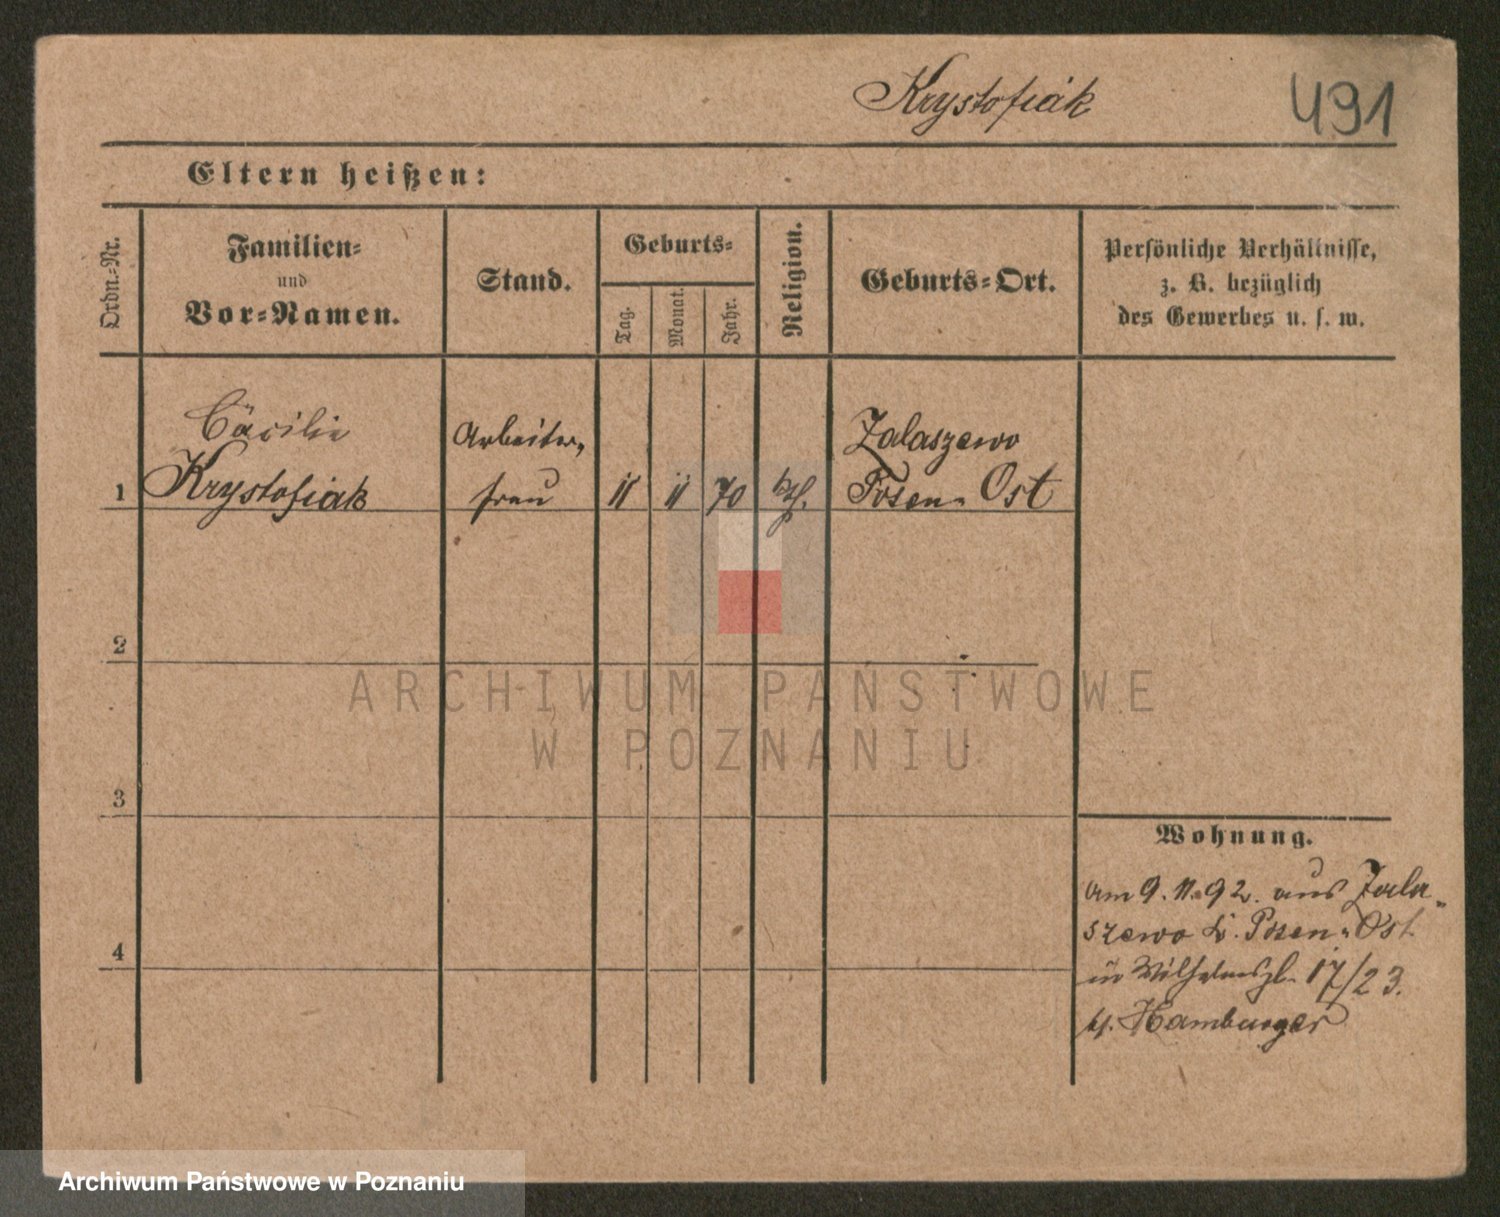 Krystofiak
491
Eltern heißen:
Ordn.=Nr.
Familien=
und
Vor=Namen.
Stand.
Geburts=
Tag.
Monat.
Jahr.
Religion.
Geburts=Ort.
Persönliche Verhältnisse,
z. B. bezüglich
des Gewerbes u. s. w.
Cäcilie
Arbeiter,
Zalaszewo
1 Krystofiak frau 11 11 70 kth. Posen-Ost
2
3
4
ARCHIWUM PAŃSTWOWE
W POZNANIU
Wohnung.
am 9.11.92. aus Zala-
szewo Kr. Posen-Ost
in Wilhelmspl. 17/23.
b/. Hamburger
Archiwum Państwowe w Poznaniu